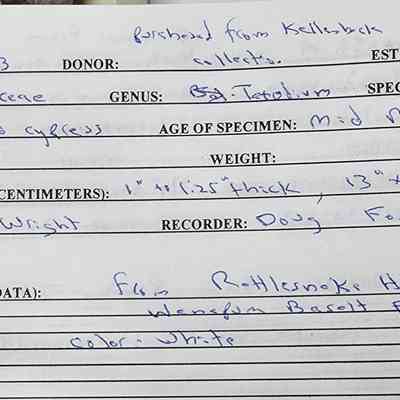 purchased from Kellenbeck
3 DONOR: collectn. EST
ceae GENUS: Tetodium SPEC
cypress AGE OF SPECIMEN: Mid
WEIGHT:
CENTIMETERS): 1" to 1.25" thick, 13" x
Wright RECORDER: Doug Fo
DATA): From Rattlesnake H
Wanapum Basalt F
color - white